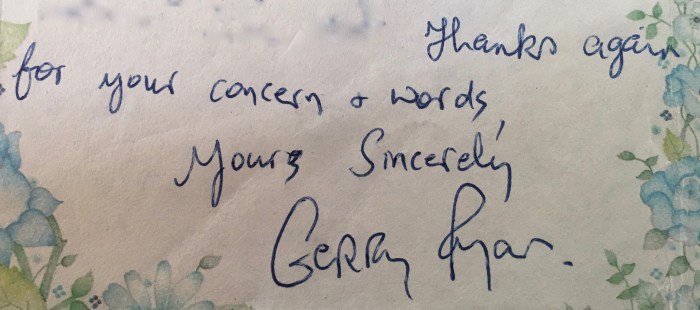 Thanks again
for your concern + words,
Yours Sincerely
Gerry Ryan.